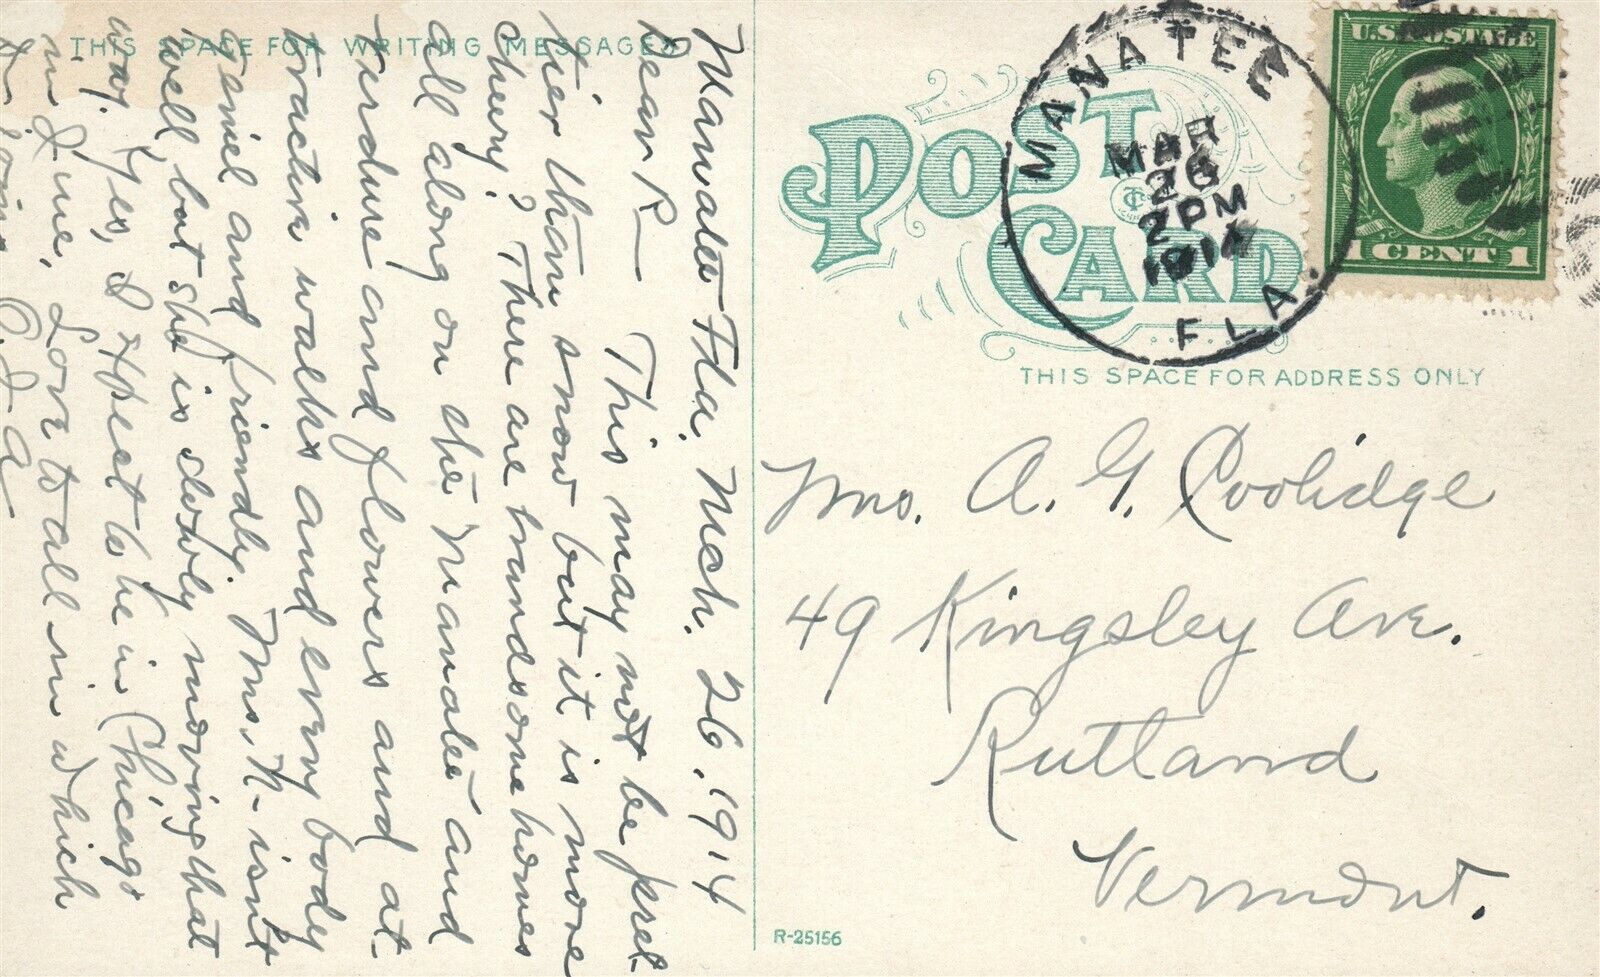 THIS SPACE FOR WRITING MESSAGES
Manatee Fla. Mch. 26. 1914
Dear R— This may not be pret-
tier than snow but it is more
cheery? There are handsome homes
all along on the Manatee and
virdure and flowers and at-
tractive walks and every body
geniel and friendly. Mrs. N- isnt
well, but she is slowly moving that
way. Yes, I expect to be in Chicago
in June, Love to all in which
joins
POST CARD
MANATEE
MAR
26
2 PM
1914
FLA.
U.S. POSTAGE
1 CENT 1
THIS SPACE FOR ADDRESS ONLY
Mrs. A. G. Coolidge
49 Kingsley Ave.
Rutland
Vermont.
R-25156